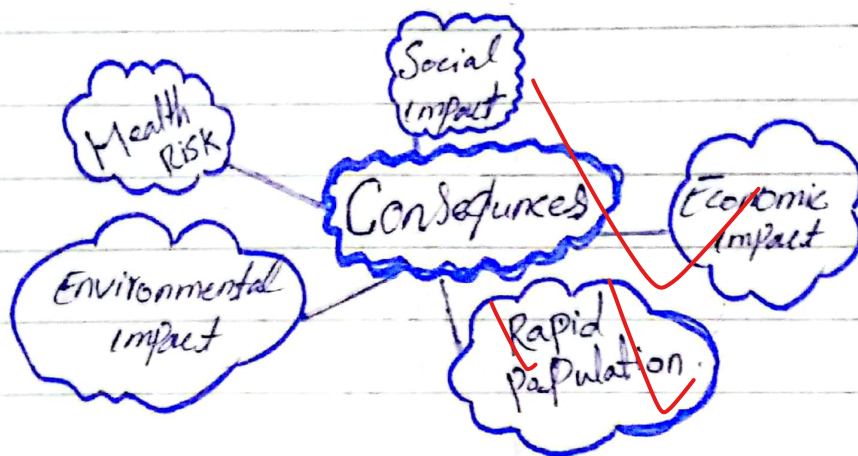 Social
impact
Health
Risk
Consequnces
Economic
impact
Environmental
impact
Rapid
papulation.